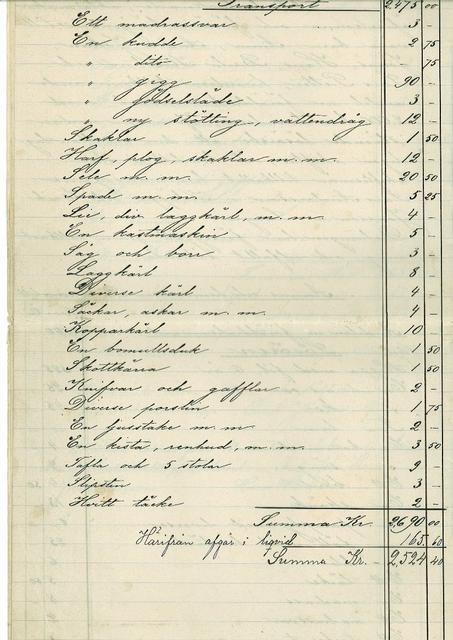 Transport 2475 00
Ett madrassvar 3 -
En kudde 2 75
" dito - 75
" gigg 90 -
" gödselsläde 3 -
" ny stötting, vattendrög 12 -
Skaklar 1 50
Harf, plog, skaklar m. m. 12 -
Sele m. m. 20 50
Spade m. m. 5 25
Lie, div. laggkärl, m. m. 4 -
En kastmaskin 5 -
Såg och borr 3 -
Laggkärl 8 -
Diverse kärl 4 -
Säckar, askar m. m. 4 -
Kopparkärl 10 -
En bomullsduk 1 50
Skottkärra 1 50
Knifvar och gafflar 2 -
Diverse porslin 1 75
En ljusstake m. m. 2 -
En kista, renhud, m. m. 3 50
Tafla och 5 stolar 9 -
Slipsten 3 -
Hvitt täcke 2 -
Summa Kr. 2690 00
Härifrån afgår i liqvid 165. 60
Summa Kr. 2,524 40